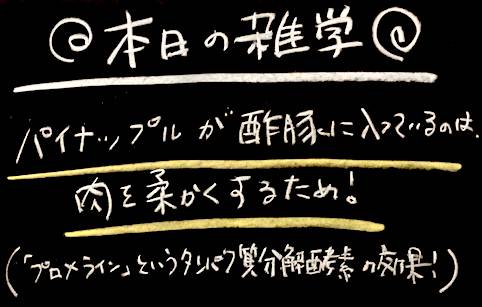 @本日の雑学@
パイナップルが酢豚に入っているのは、
肉を柔かくするため!
(「プロメライン」というタンパク質分解酵素の効果!)